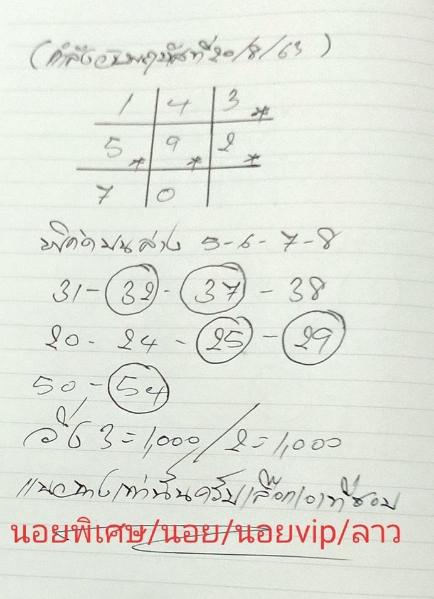 (กำลังวันพฤหัสที่20/8/63)
1 4 3*
5* 9* 2*
7 0
บน ล่าง 5-6-7-8
31-32-37-38
20-24-25-29
50-54
วิ่ง 3=1,000/2=1,000
แนวทางเท่านั้นครับ/เลือกเอาที่ชอบ
นอยพิเศษ/นอย/นอยvip/ลาว